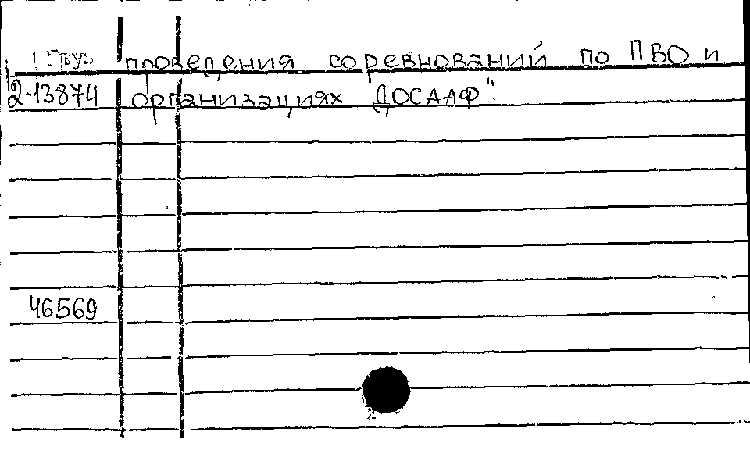 1 Груз проведения соревнований по ПВО и
2-13874 организациях ДОСААФ".
46569
2